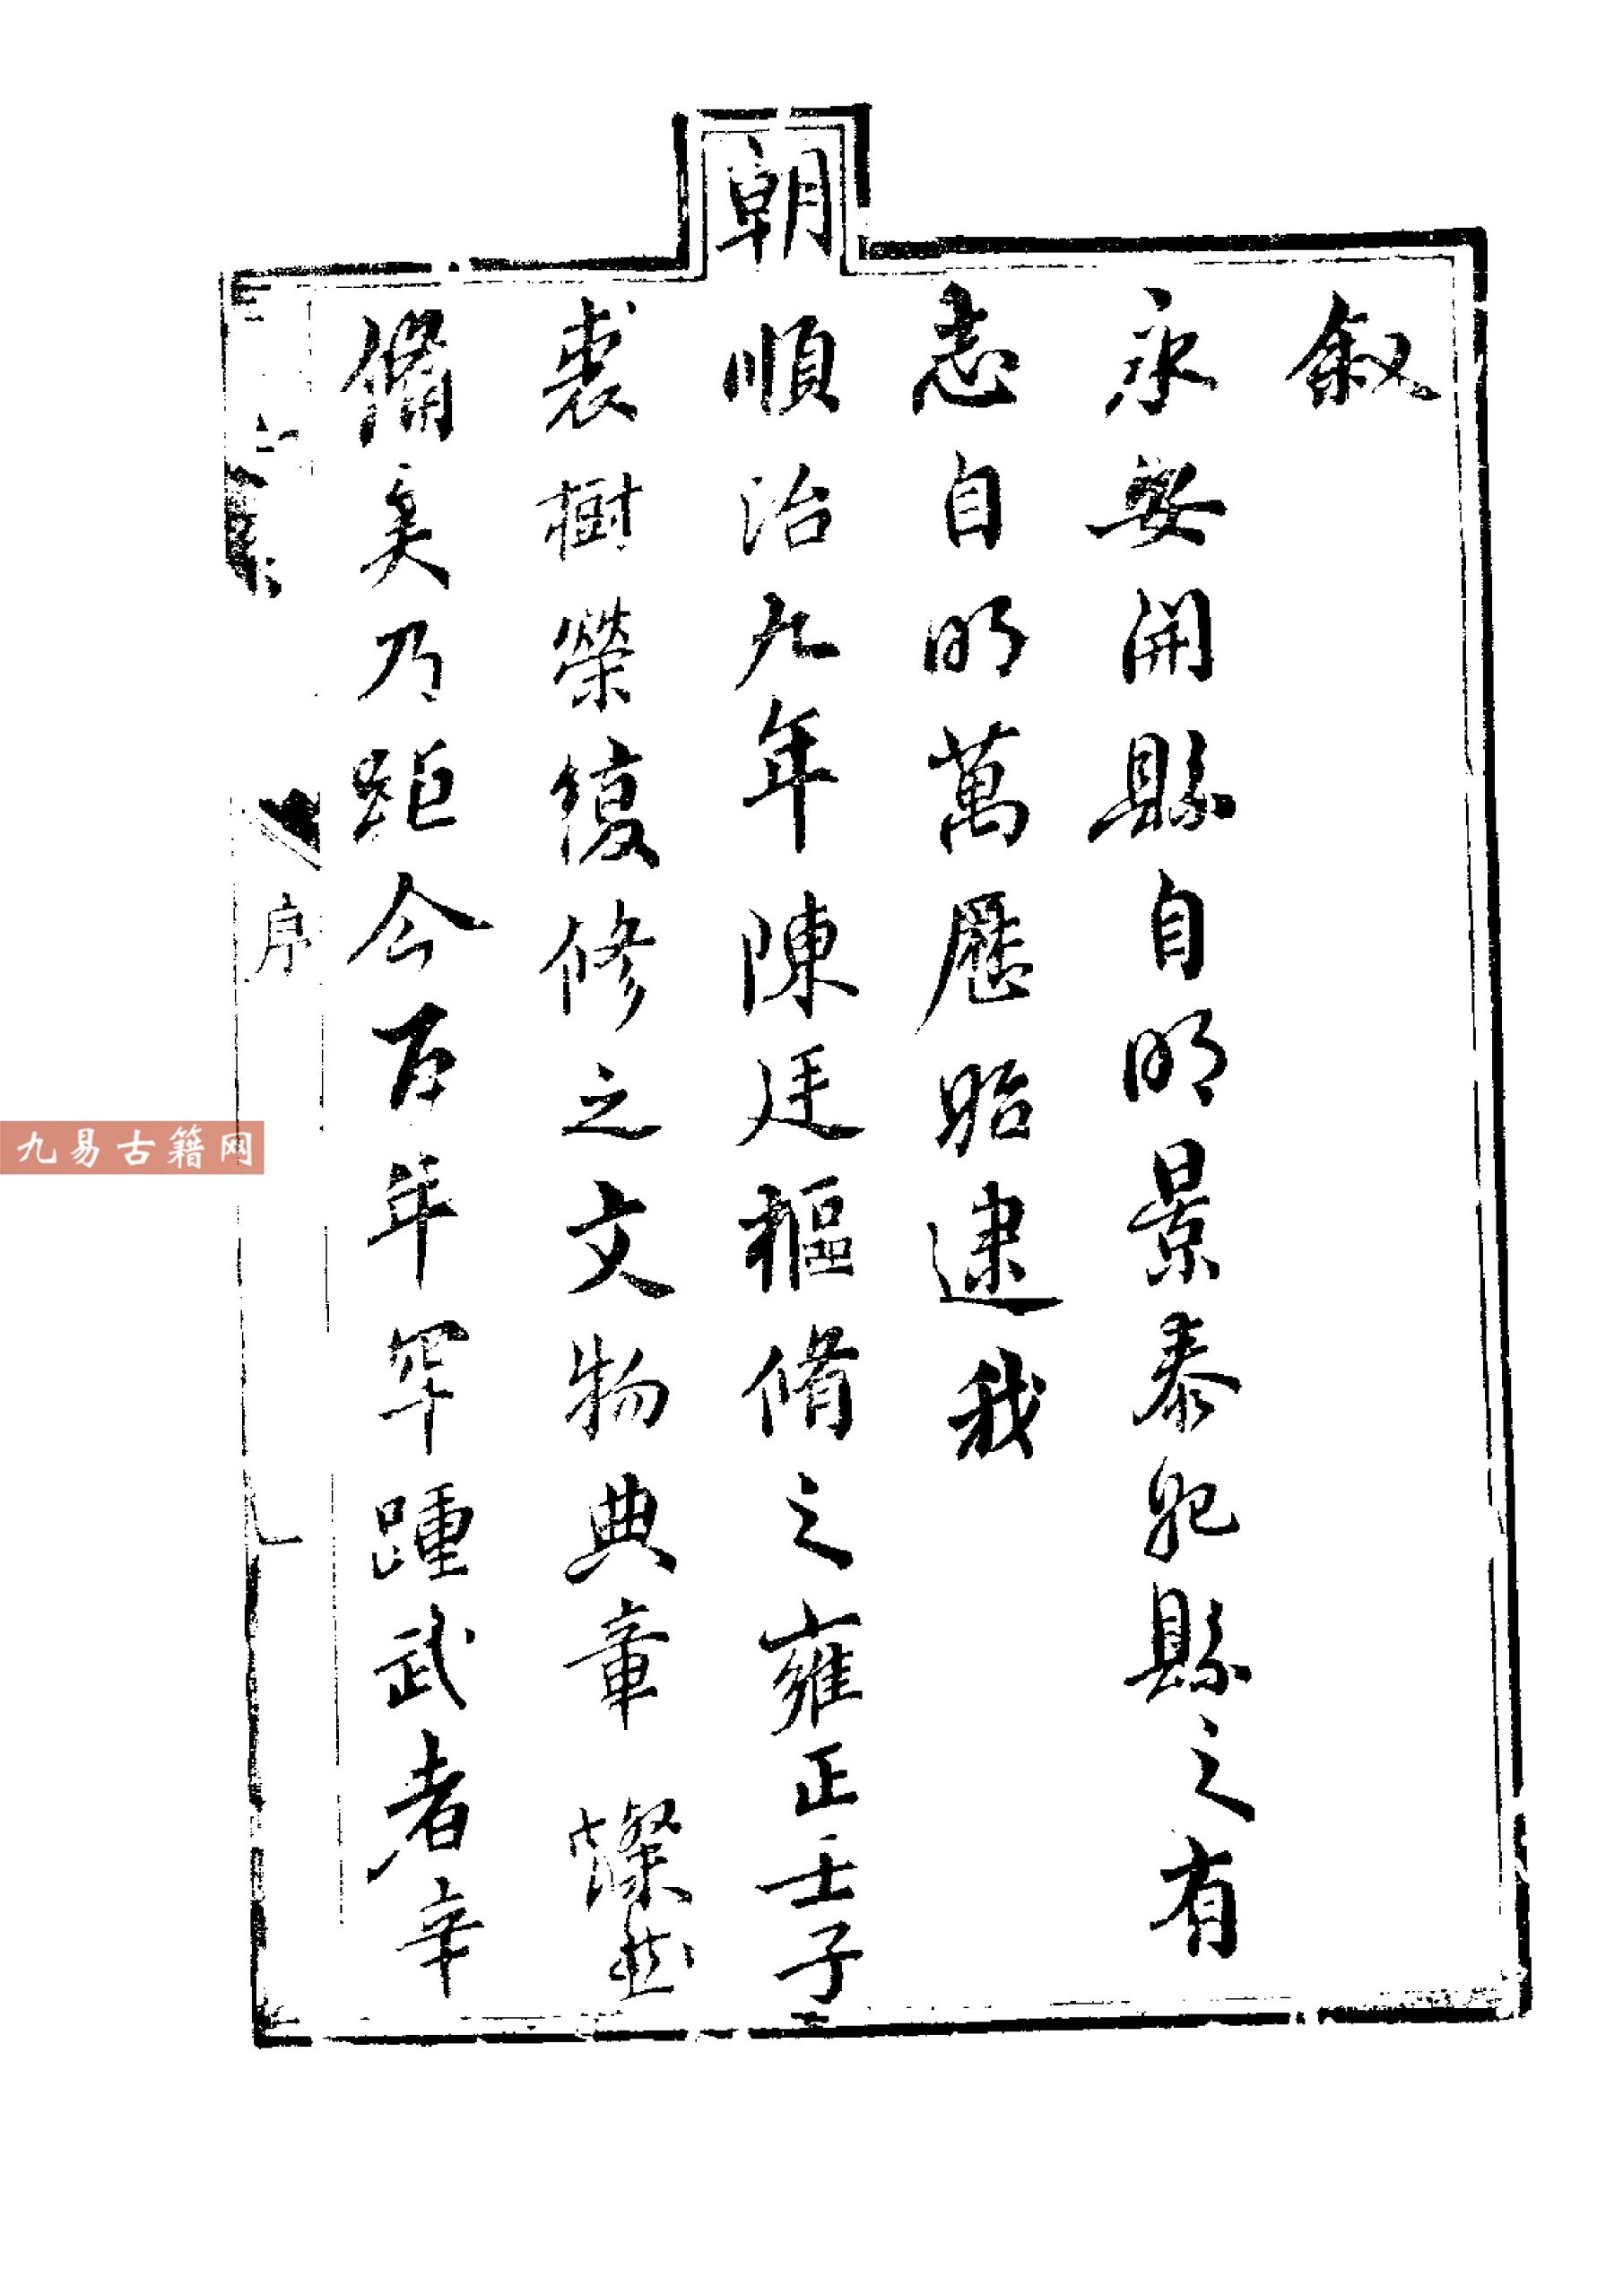 叙
永安開縣自明景泰始縣之有
志自明萬歷昉逮我
朝
順治九年陳廷樞脩之雍正壬子
裘樹榮復修之文物典章燦然
備矣乃距今百年罕踵武者辛
序
九易古籍网